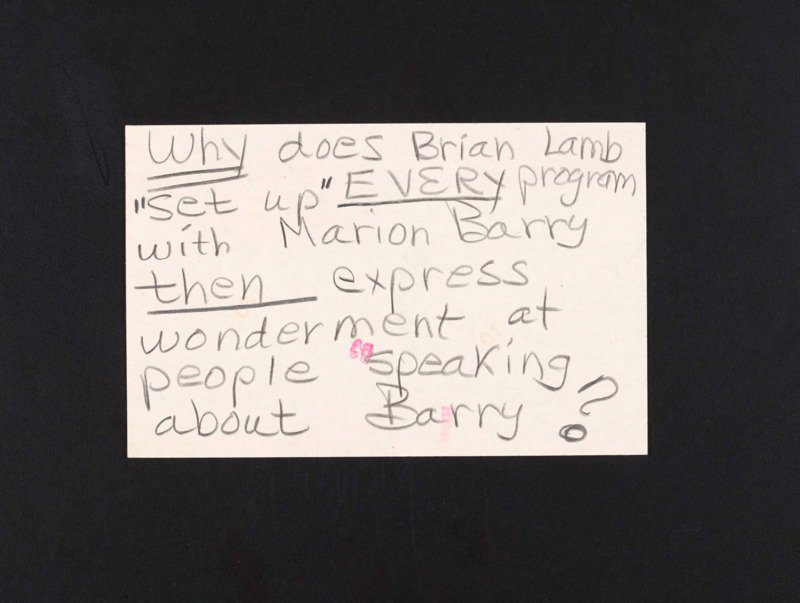 Why does Brian Lamb
"set up" EVERY program
with Marion Barry
then express
wonderment at
people speaking
about Barry?